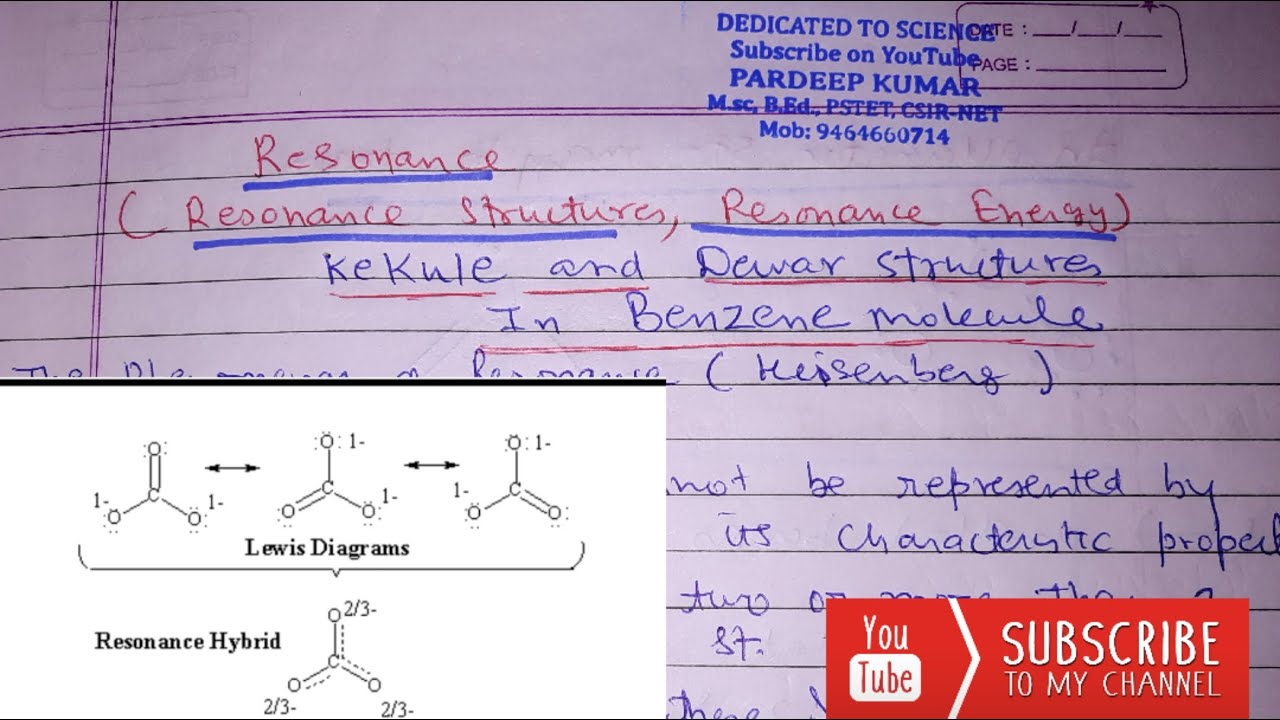 DEDICATED TO SCIENCE
Subscribe on YouTube
PARDEEP KUMAR
M.sc, B.Ed., PSTET, CSIR-NET
Mob: 9464660714
DATE : __/__/__
PAGE :
Resonance
( Resonance Structures, Resonance Energy)
Kekule and Dewar structures
In Benzene molecule
Resonance (Heisenberg)
not be represented by
its characteristic propert
two or more tha
st.
there
:O: 1- :O: 1- :O:
1- O C O: 1- :O C O: 1- 1- :O C O:
Lewis Diagrams
O 2/3-
Resonance Hybrid
C
O O
2/3- 2/3-
You
Tube
SUBSCRIBE
TO MY CHANNEL